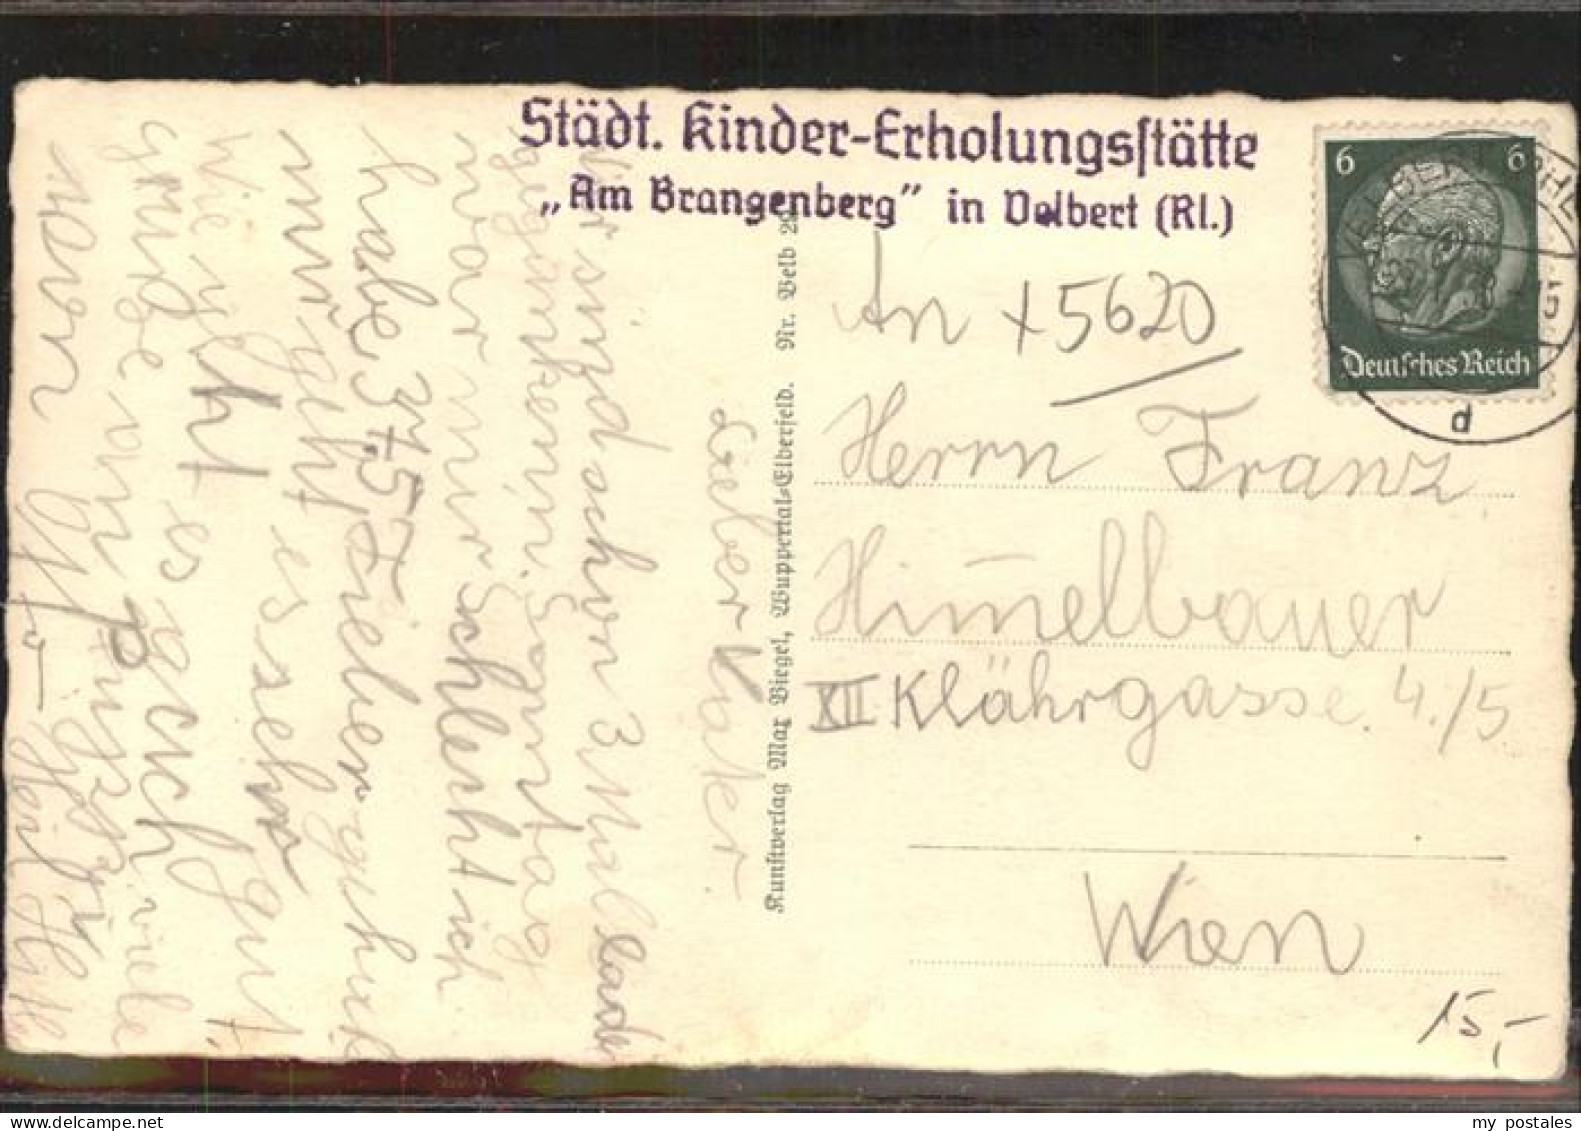 Städt. Kinder-Erholungsstätte
„Am Brangenberg" in Velbert (Rl.)
6 6
Deutsches Reich
d
An + 5620
Herrn Franz
Himelbauer
XII Klährgasse 4./5
Wien
15,-
Kunstverlag Max Biegel, Wuppertal-Elberfeld. Nr. Velb 2
Lieber Vater.
Wir sind schon 3 Mal baden
gegangen. Sonntag
war mir schlecht ich
habe 37.5 Fieber gehabt
mir geht es sehr gut.
Wie geht es euch
Grüße und viele
von
my postales